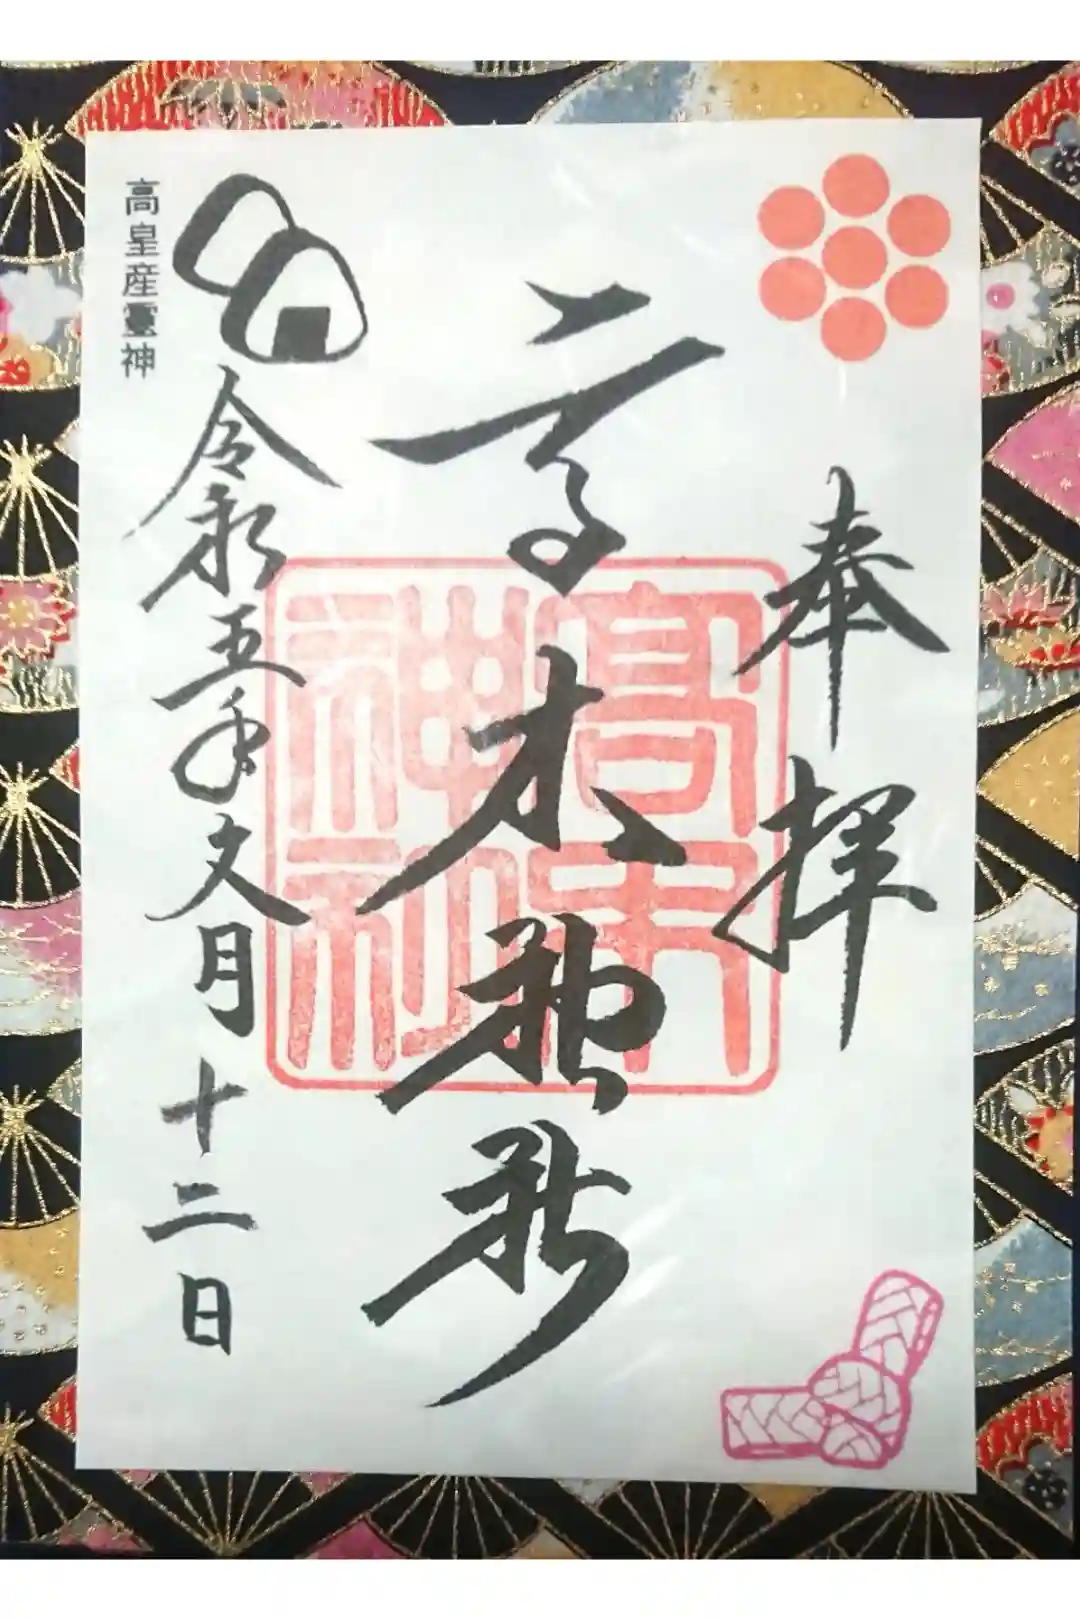 奉拝
高木神社
髙木神社
令和五年文月十二日
高皇産霊神